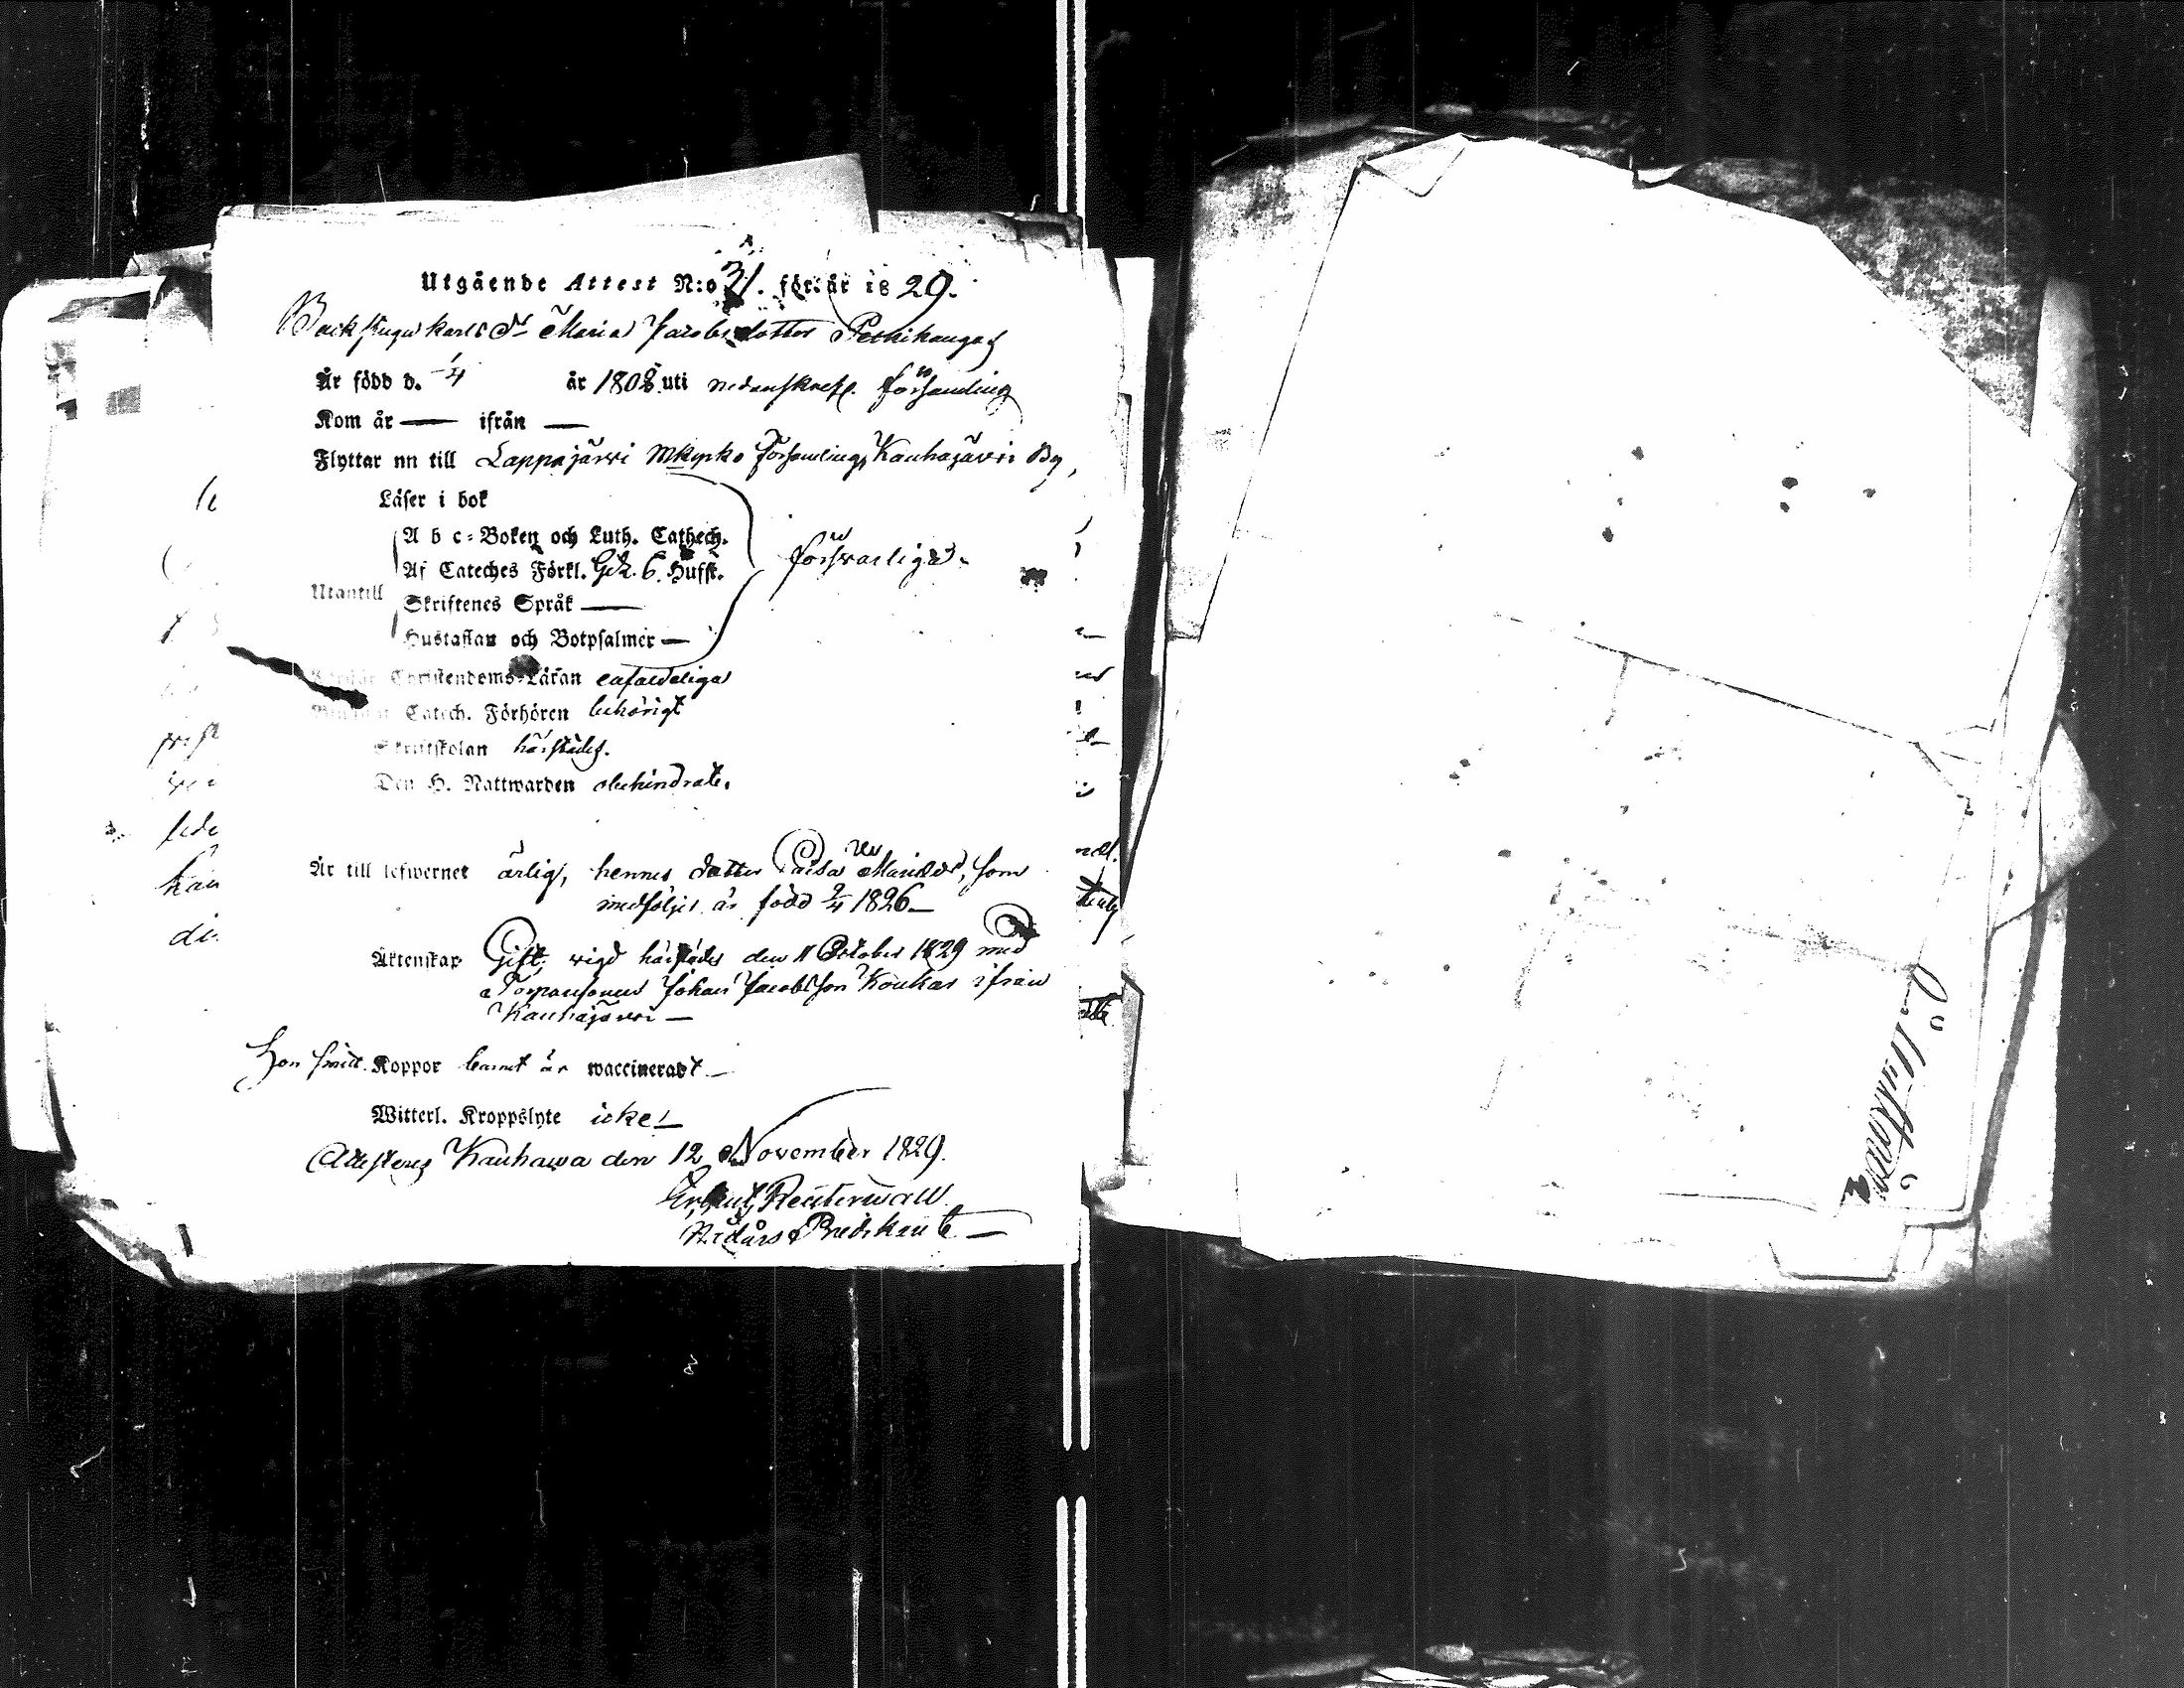 Utgående Attest N:o 31. för år 1829.
Backstugu karls Dr Maria Jacobsdotter Pernikangas
Är född d. 1/4 år 1808 uti nedanskrefl. församling
Kom år — ifrån —
Flyttar nn till Lappajärvi Mkyrko församling, Kauhajärvi By,
Läser i bok
A b c-Boken och Luth. Cathech.
Af Cateches Förkl. 6. Hufst. försvarliga.
Utantill
Skriftenes Språk —
Hustaflan och Botpsalmer —
Christendoms-Läran enfaldeliga
Catech. Förhören behörigt
Skriftskolan härstädes.
Den H. Nattwarden obehindrat.
Är till lefwernet ärlig, hennes dotter Caisa Maria, som
medföljer är född 9/4 1826 —
Äktenskap Gift, vigd härstädes den 11 October 1829 med
Torparsonen Johan Jacobsson Koukar ifrån
Kauhajärvi —
Hon haft Koppor barnet är waccineradt —
Witterl. Kroppslyte icke —
Attesteras Kauhawa den 12 November 1829.
Reuterwall
Nådårs Predikant —